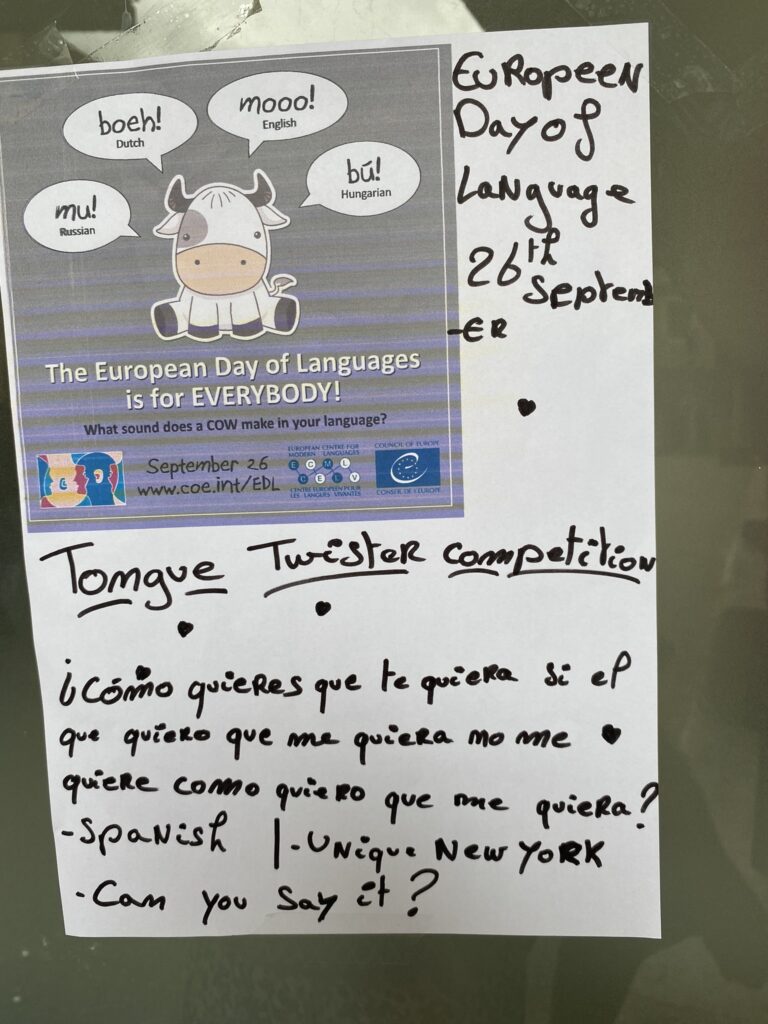 boeh!
Dutch
mooo!
English
mu!
Russian
bú!
Hungarian
The European Day of Languages
is for EVERYBODY!
What sound does a COW make in your language?
September 26
www.coe.int/EDL
EUROPEAN CENTRE FOR
MODERN LANGUAGES
E C M L
C E L V
CENTRE EUROPEEN POUR
LES LANGUES VIVANTES
COUNCIL OF EUROPE
CONSEIL DE L'EUROPE
EUROPEEN
Day of
Language
26th
Septemb
-ER
Tongue Twister Competition
¿Cómo quieres que te quiera si el
que quiero que me quiera no me
quiere como quiero que me quiera?
-Spanish | -Unique New York
-Can you say it?